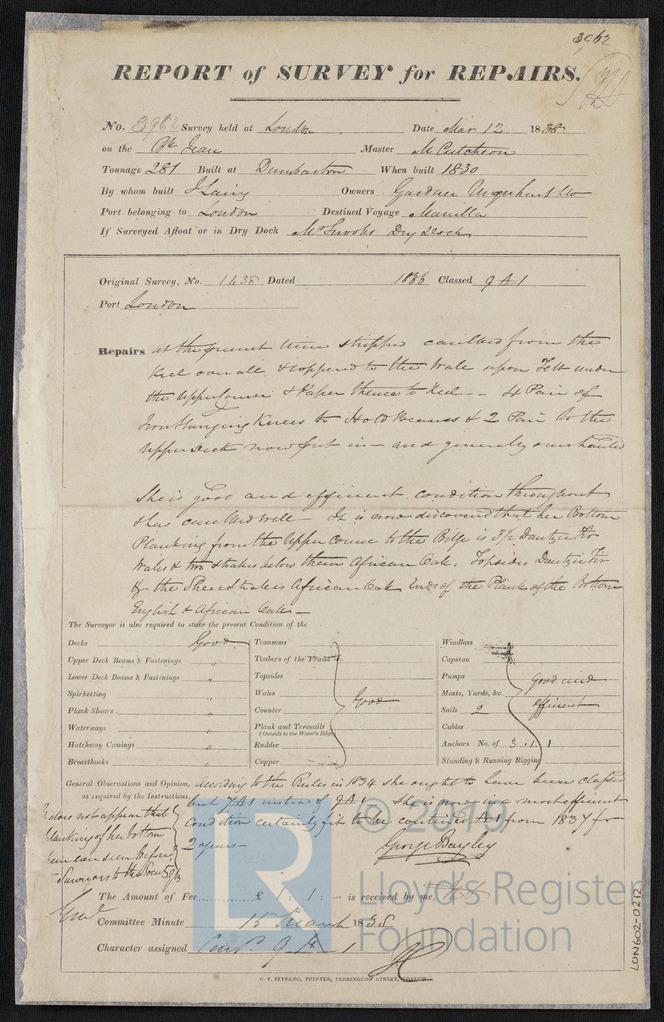 3962
REPORT of SURVEY for REPAIRS.
No. 3962 Survey held at London Date Mar 12 1838
on the Bk Jean Master McCutcheon
Tonnage 281 Built at Dumbarton When built 1830
By whom built J Laing Owners Gardner Urquhart & Co
Port belonging to London Destined Voyage Manilla
If Surveyed Afloat or in Dry Dock Dry Dock
Original Survey, No. 1438 Dated 1836 Classed 9 A 1
Port London
Repairs at the present time stripped caulked from the
Keel over all & coppered to the Wale upon Felt under
the Upper Course & Paper thence to Keel - 4 Pair of
Iron Hanging Knees to Hold Beams & 2 Pair to the
Upper Deck now put in - and generally overhauled
She is good and efficient condition throughout
& has caulked well - It is now discovered that her Bottom
Planking from the Upper Course to the Bilge is 3½ Dantzic Fir
Wales & two strakes below them African Oak. Topsides Dantzic Fir
& the Sheerstrakes African Oak Ends of the Planks of the Bottom
English & African Oak -
The Surveyor is also required to state the present Condition of the
Decks Good
Upper Deck Beams & Fastenings "
Lower Deck Beams & Fastenings "
Spirketting "
Plank Shears "
Waterways "
Hatchway Comings "
Breasthooks "
Transoms
Timbers of the Frame
Topsides
Wales
Counter Good
Plank and Treenails
(Outside to the Water's Edge)
Rudder
Copper
Windlass
Capstan
Pumps Good and
Masts, Yards, &c.
Sails 2 efficient
Cables
Anchors No. of 3.1.1
Standing & Running Rigging
General Observations and Opinion, According to the Rules in 1834 she ought to have been classed
as required by the Instructions, but 7 A 1 instead of 9 A 1 She is now in a most efficient
condition certainly fit to be continued A 1 from 1837 for
2 years -
George Bayley
does not appear that
planking of her bottom
been seen before
Surveyors to the
The Amount of Fee £ 1 : 1 : - is received by me
Committee Minute 15 March 1838
Character assigned 9 A 1
G. F. SEYFANG, PRINTER, FARRINGDON STREET, LONDON.
© 2019
LR
Lloyd's Register
Foundation
LON602-0212